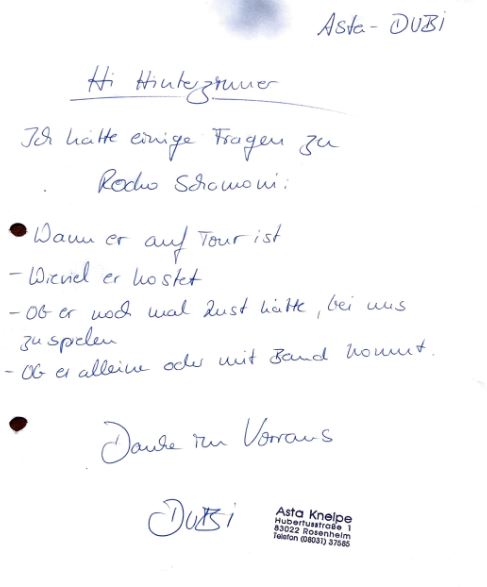 Asta - DUBi
Hi Hinterzimmer
Ich hätte einige Fragen zu
Rocko Schamoni:
- Wann er auf Tour ist
- Wieviel er kostet
- OB er noch mal Lust hätte, bei uns
zu spielen
- OB er alleine oder mit Band kommt.
Danke im Vorraus
DUBi
Asta Kneipe
Hubertusstraße 1
83022 Rosenheim
Telefon (08031) 37585